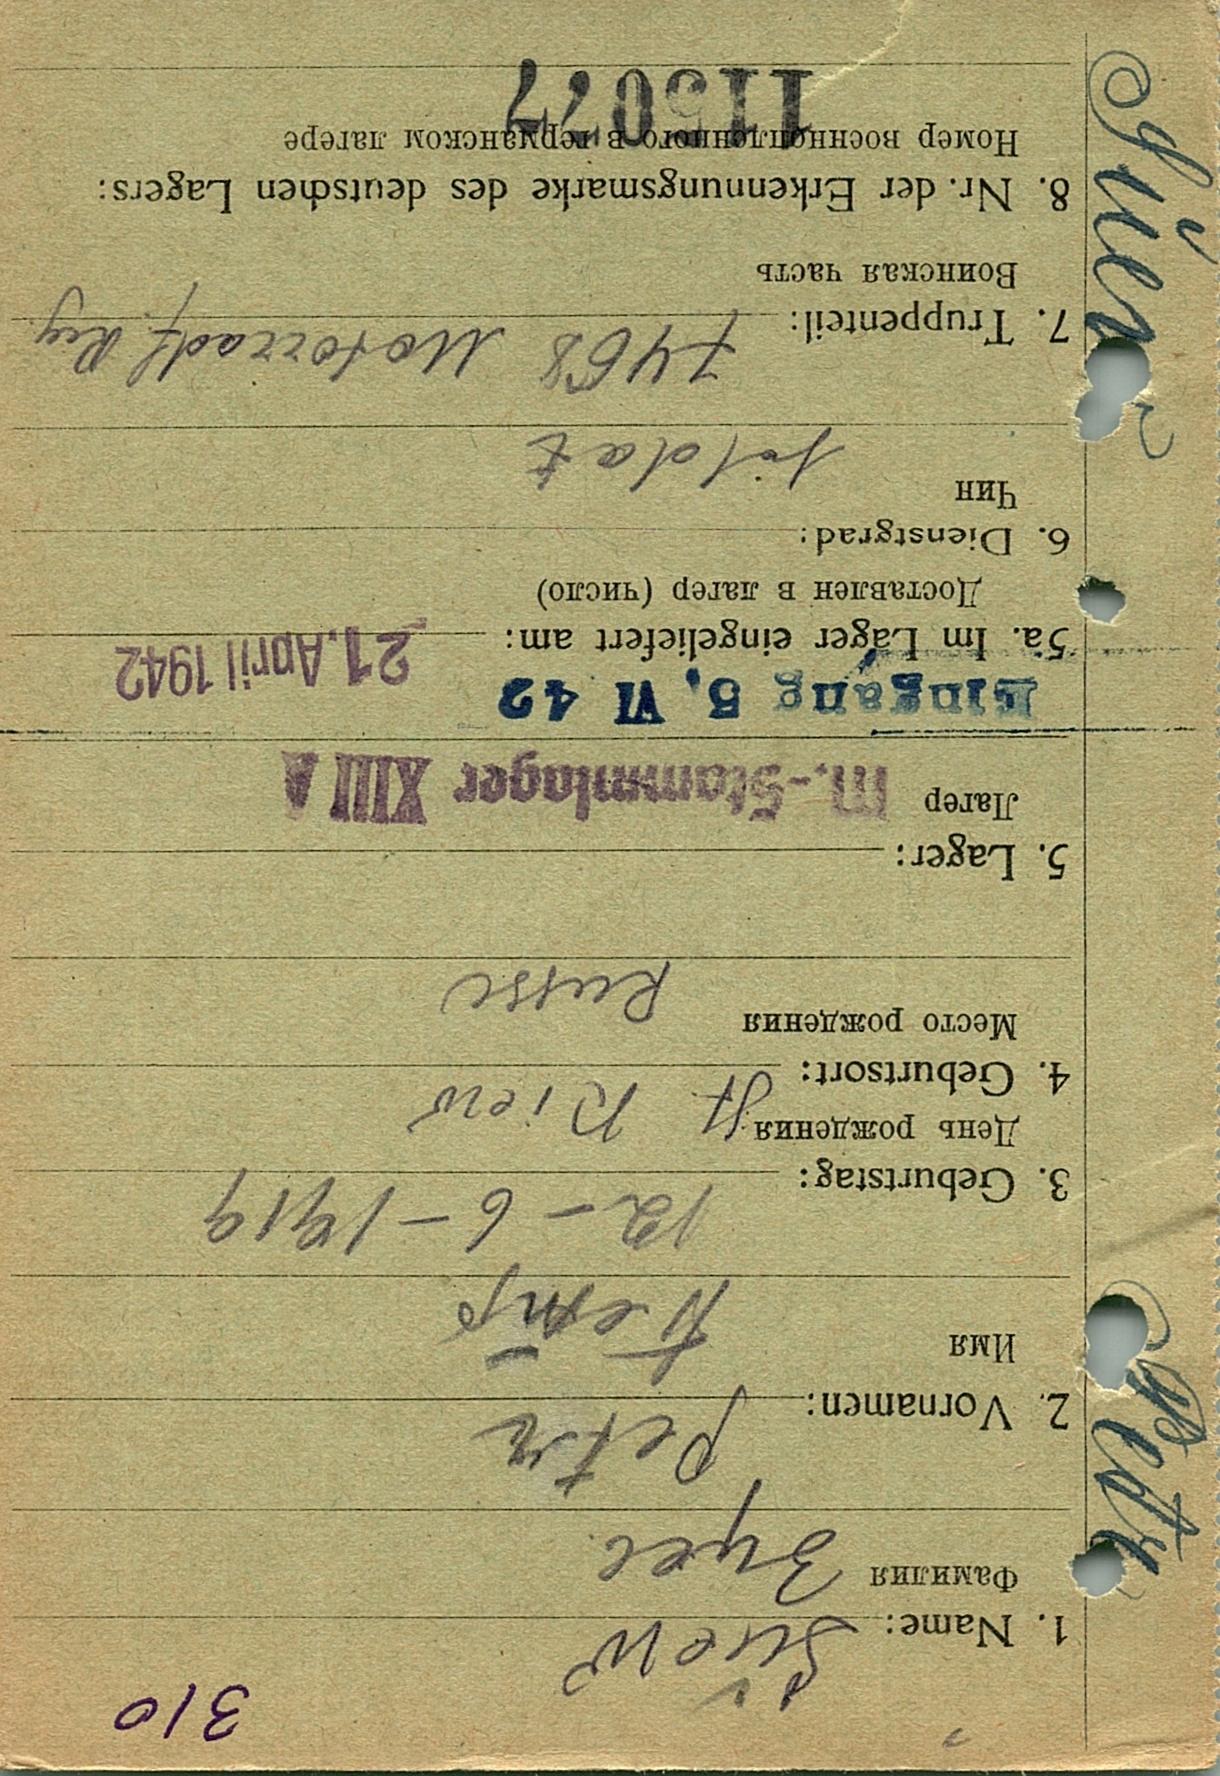 310
1. Name: Süew
Фамилия Зуев
2. Vornamen: Petr
Имя Петр
3. Geburtstag: 12-6-1919
День рождения
4. Geburtsort: St Kiew
Место рождения Russe
5. Lager:
Лагер M.-Stammlager XIII A
Eingang 5. VI 42
5a. Im Lager eingeliefert am: 21. April 1942
Доставлен в лагер (число)
6. Dienstgrad:
Чин soldat
7. Truppenteil: 7468 Motorradf. Reg
Воинская часть
8. Nr. der Erkennungsmarke des deutschen Lagers:
Номер военнопленного в германском лагере
115077
Petr Süew